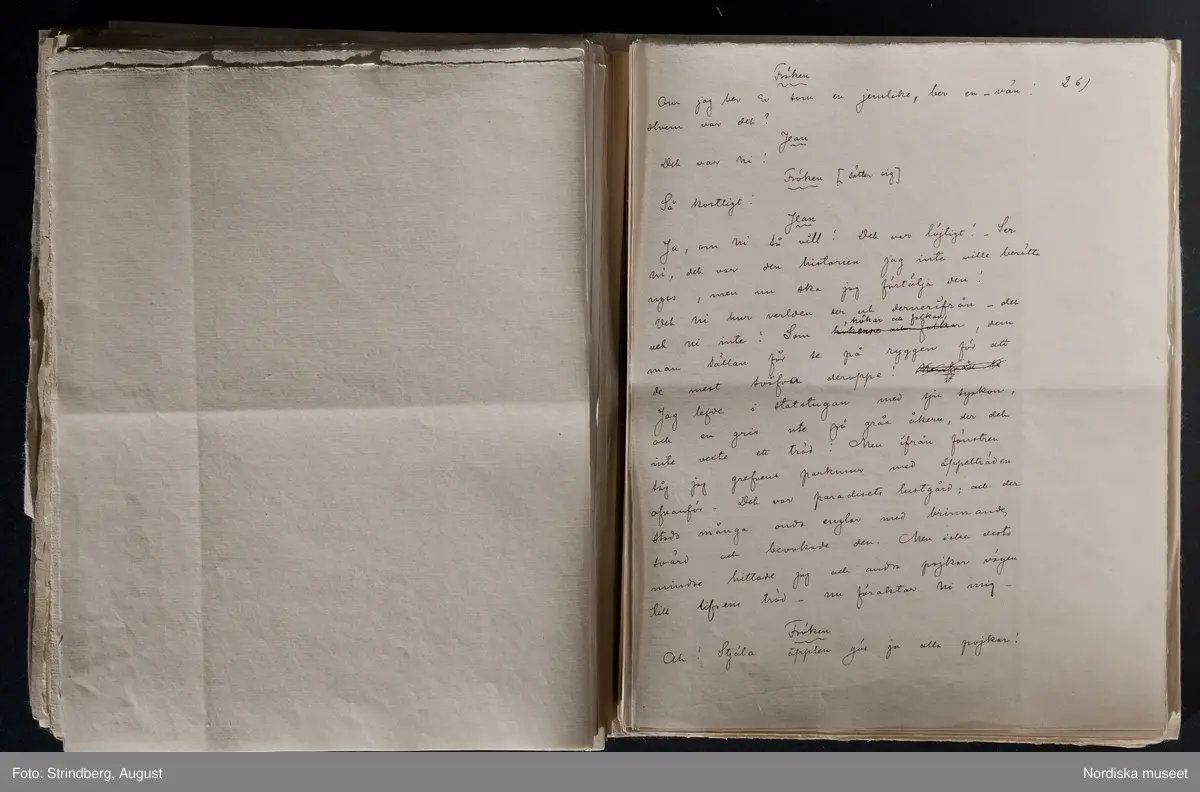 Fröken
26)
Om jag ber Er som en jemlike, ber en – vän!
Hvem var det?
Jean
Det var Ni!
Fröken [sätter sig]
Så kostligt!
Jean
Ja, om Ni så vill! Det var löjligt! – Ser
Ni, det var den historien jag inte ville berätta
nyss, men nu ska jag förtälja den!
Vet Ni hur verlden ser ut dernerifrån – det
vet Ni inte! Som
hökar och falkar
hökarne och falkar, dem
man sällan får se på ryggen för att
de mest sväfva deroppe!
Jag lefde i statstugan med sju syskon,
och en gris ute på gråa åkern, der det
inte vexte ett träd! Men ifrån fönstren
såg jag grefvens parkmur med äppelträden
ofvanför. Det var paradisets lustgård; och der
stodo många onda englar med brinnande
svärd och bevakade den. Men icke desto
mindre hittade jag och andra pojkar vägen
till lifsens träd – nu föraktar Ni mig –
Fröken
Ah! Stjäla äpplen gör ju alla pojkar!
Foto: Strindberg, August
Nordiska museet